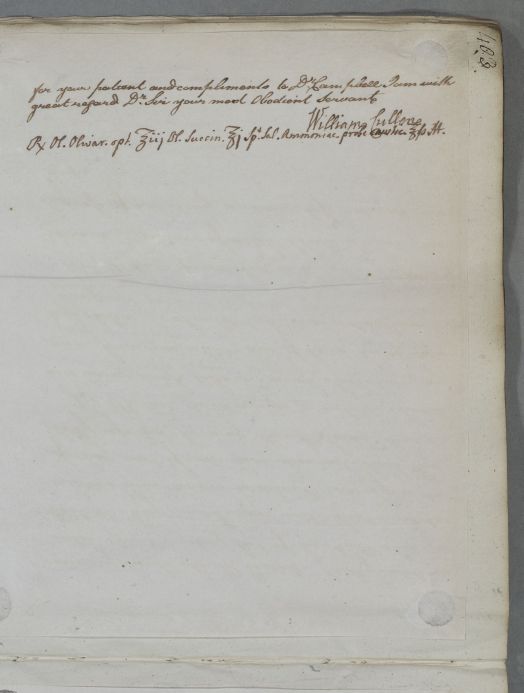 for your patient and compliments to Dr. Campbell I am with
great regard Dr. Sir your most Obedient Servant
William Cullen
Rx Ol. Olivar. opt. ℥iij Ol. Succin. ℥j Sp.t Sal. Ammoniac. ℥ss M.